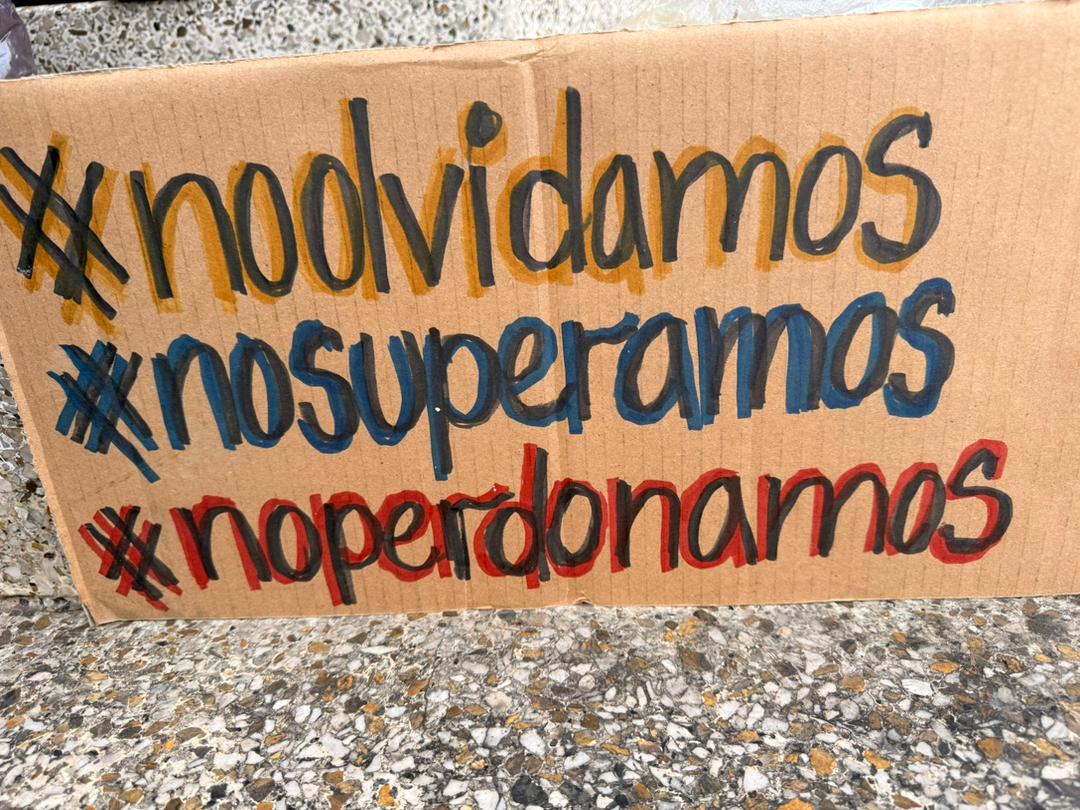 #noolvidamos
#nosuperamos
#noperdonamos